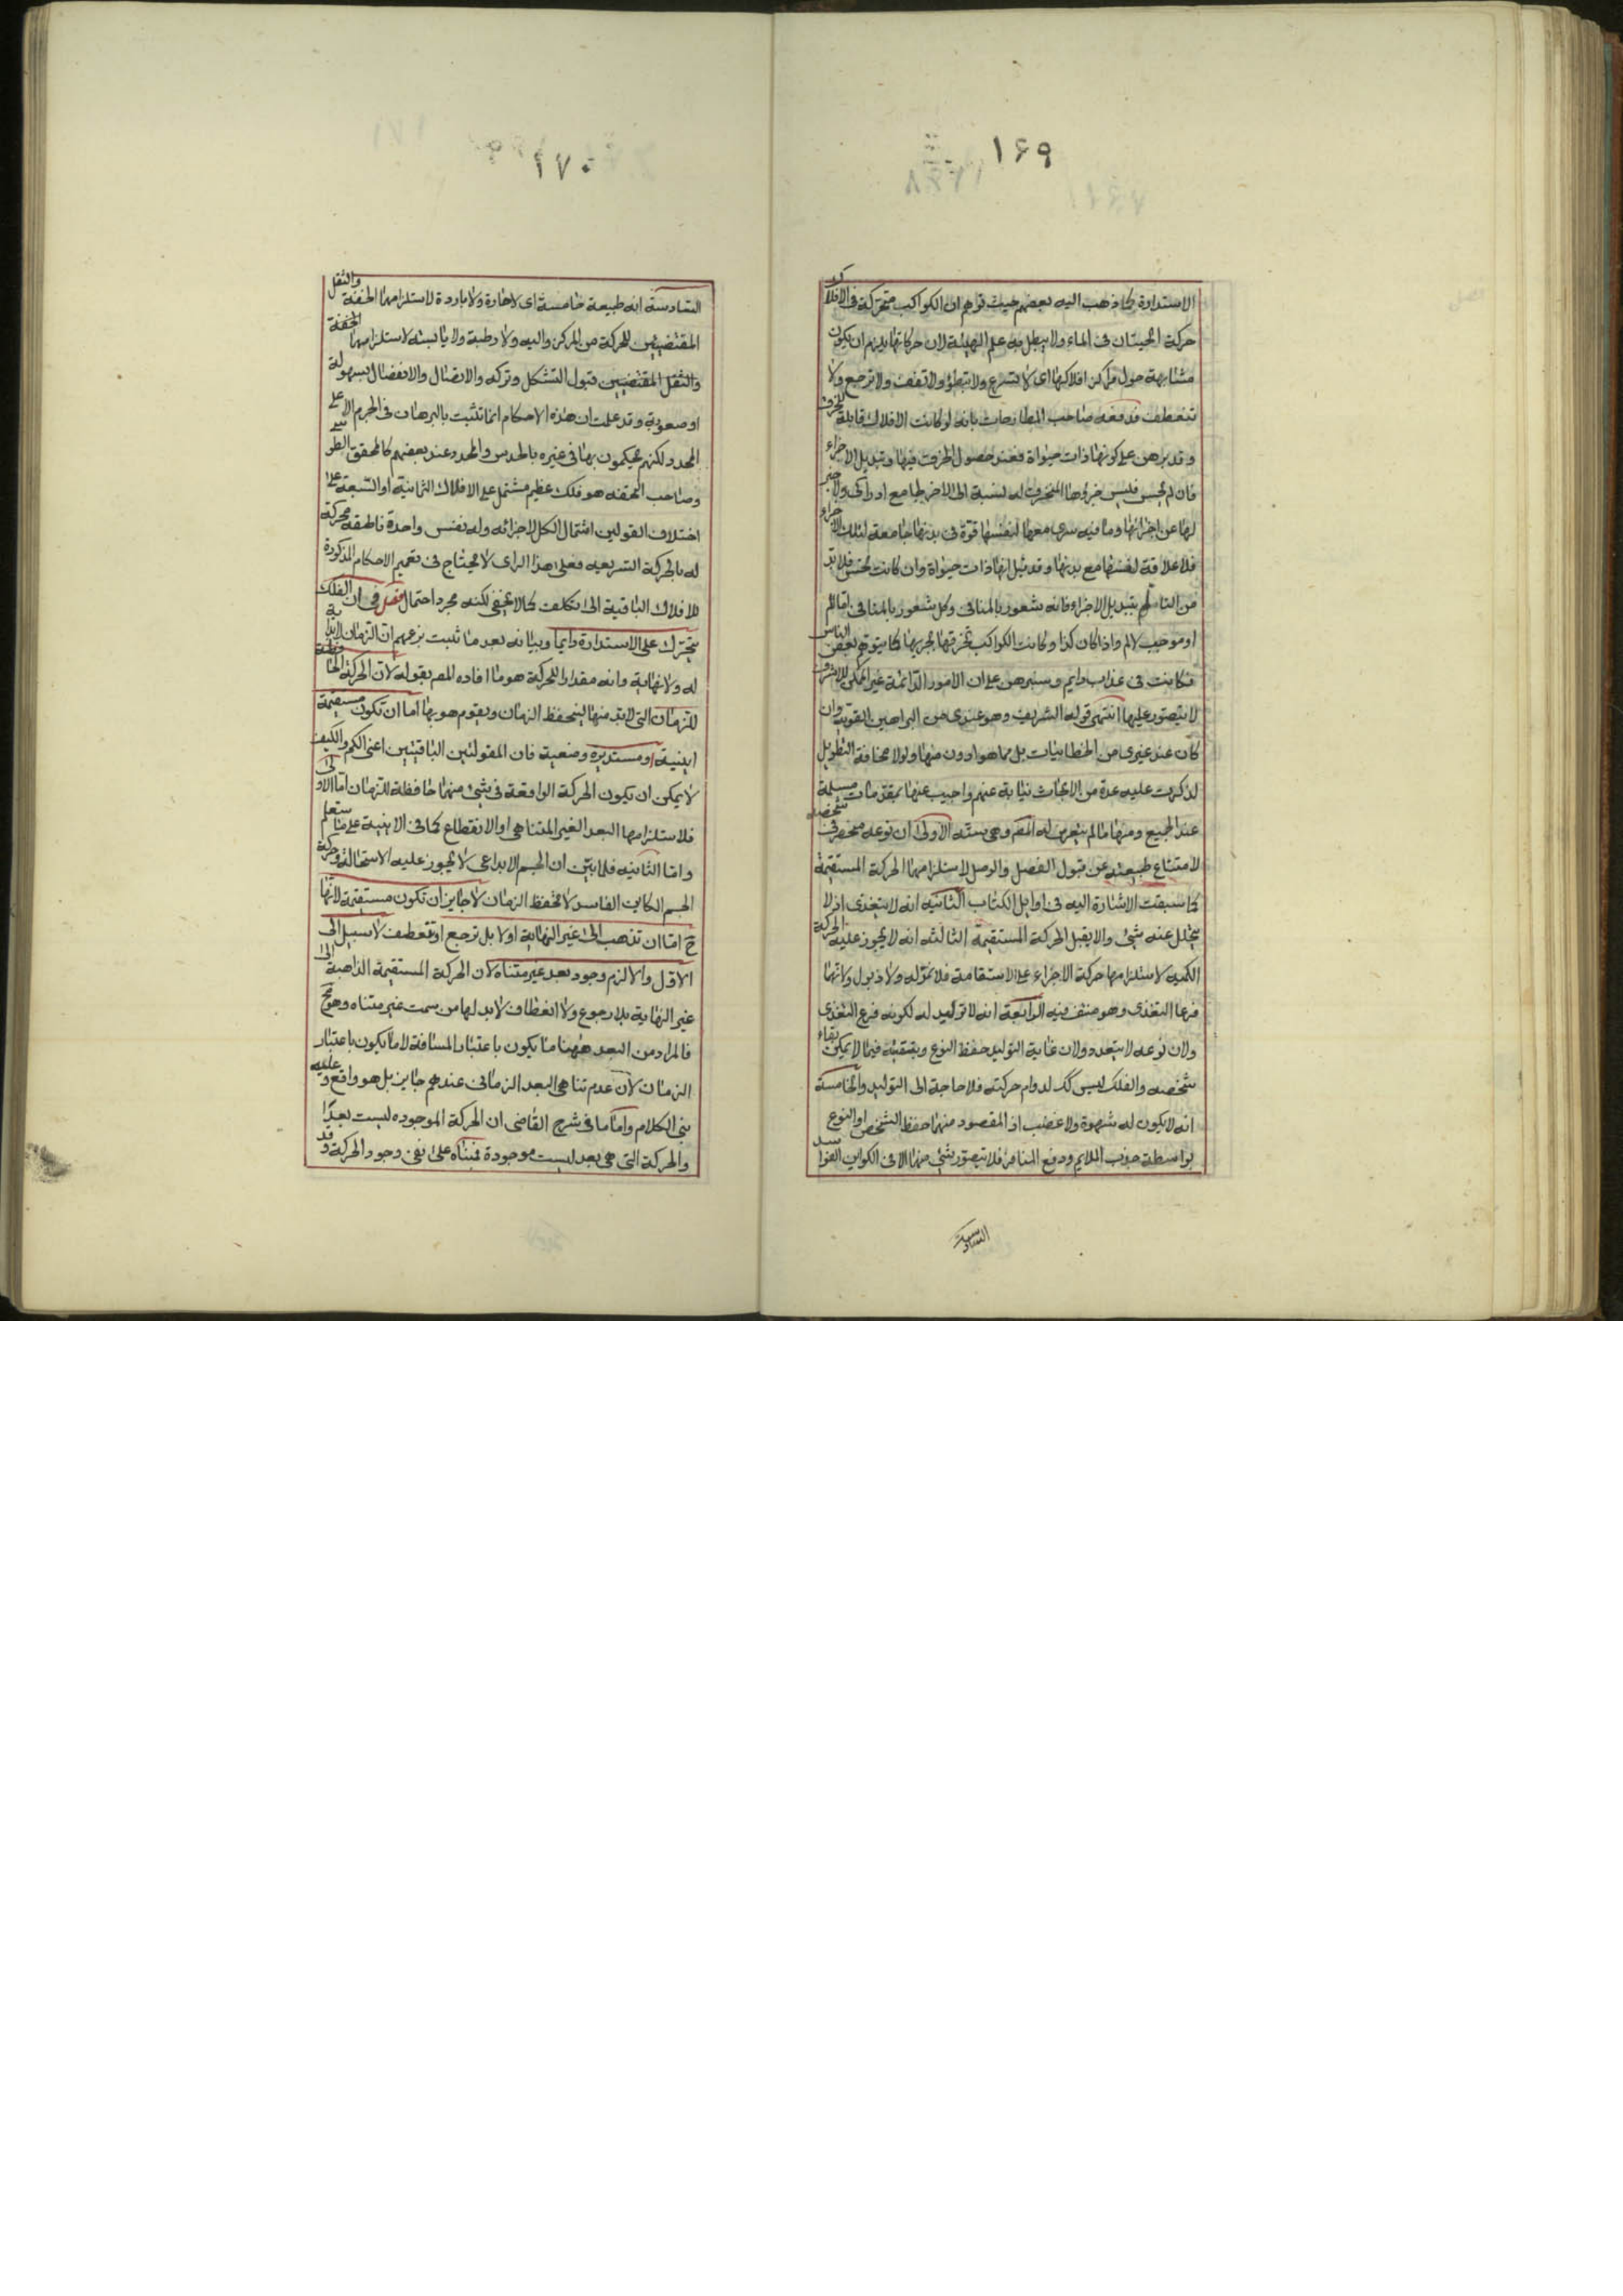 ١۶٩
الاستدارة كما ذهب اليه بعضهم حيث توهم ان الكواكب متحركة فى الافلاك
حركة الحيتان فى الماء ولا يبطل به علم الهيئة لان حركاتها يلزم ان يكون
متشابهة حول مراكز افلاكها اى لا تسرع ولا تبطؤ ولا تقف ولا ترجع ولا
تنعطف فدفعه صاحب المطارحات بانه لو كانت الافلاك قابلة للخرق
و قد برهن على كونها ذات حيواة فعند حصول الخرق فيها و تبديل الاجزاء
فان لم يحس فليس جزؤها المنخرق له نسبة الى الاخر بجامع ادراكى ولا خبر
لها عن اجزائها وما فيه سرى معها لنفسها قوة فى بدنها جامعة لتلك الاجزاء
فلا علاقة لنفسها مع بدنها و قد قيل انها ذات حيواة وان كانت تحس فلا بد
من التالم بتبديل الاجزاء فانه شعور بالمنافى وكل شعور بالمنافى اما الم
او موجب لالم واذا كان كذا وكانت الكواكب تخرقها بجريها كما يتوهم بعض الناس
فكانت فى عذاب دايم و سنبرهن على ان الامور الدائمة غير الممكن للاشرف
لا يتصور عليها انتهى قوله الشريف وهو عندى من البراهين القوية وان
كان عند غيرى من الخطابيات بل مما هو ادون منها ولولا مخافة التطويل
لذكرت عليه عدة من الابحاث نيابة عنهم واجيب عنها بمقدمات مسلمة
عند الجميع ومنها ما لم يتعرض له المصم وهى ستة الاولى ان نوعه منحصر فى شخصه
لامتناع طبيعته عن قبول الفصل والوصل لاستلزامهما الحركة المستقيمة
كما سبقت الاشارة اليه فى اوايل الكتاب الثانية انه لا يتغذى اذ لا
يتحلل عنه شىء والا يقبل الحركة المستقيمة الثالثه انه لا يجوز عليه الحركة
الكمية لاستلزامها حركة الاجزاء على الاستقامة فلا نمو له ولا ذبول ولانهما
فرعا التغذى وهو منتف فيه الرابعة انه لا توليد له لكونه فرع التغذى
ولان نوعه لا يتعدد ولان غاية التوليد حفظ النوع وتبقيته فيما لا يمكن بقاء
شخصه والفلك ليس كك لدوام حركته فلا حاجة الى التوليد والخامسة
انه لا يكون له شهوة ولا غضب اذ المقصود منهما حفظ الشخص او النوع
بواسطة جذب الملايم ودفع المنافر فلا يتصور شىء منهما الا فى الكواين الفواسد
السادسة
١٧٠
السادسة انه طبيعة خامسة اى لا حارة ولا باردة لاستلزامهما الخفة والثقل
المقتضيين للحركة من المركز واليه ولا رطبة ولا يابسة لاستلزامهما الخفة
والثقل المقتضيين قبول التشكل وتركه والاتصال والانفصال بسهولة
او صعوبة وقد علمت ان هذه الاحكام انما تثبت بالبرهان فى الجرم الاعلى
المحدد لكنهم يحكمون بها فى غيره بالحدس والمحدد عند بعضهم كالمحقق الطوسى
وصاحب التحفه هو فلك عظيم مشتمل على الافلاك الثمانية او السبعة على
اختلاف القولين اشتمال الكل لاجزائه وله نفس واحدة ناطقه محركة
له بالحركة السريعه فعلى هذا الراى لا يحتاج فى تعميم الاحكام المذكورة
للافلاك الباقية الى تكلف كما لا يخفى لكنه مجرد احتمال فصل فى ان الفلك
يتحرك على الاستدارة دايما وبيانه بعد ما ثبت بزعمهم ان الزمان لا بداية
له ولا نهاية وانه مقدار الحركة هو ما افاده المصم بقوله لان الحركة الحافظة
للزمان التى لا بد منها لينحفظ الزمان ويقوم هو بها اما ان تكون مستقيمة
اينية او مستديرة وضعية فان المقولتين الباقيتين اعنى الكم والكيف
لا يمكن ان يكون الحركة الواقعة فى شىء منهما حافظة للزمان اما الاولى
فلاستلزامها البعد الغير المتناهى او الانقطاع كما فى الاينية على ما ستعلم
واما الثانيه فلما تبين ان الجسم الابداعى لا يجوز عليه الاستحالة وحركة
الجسم الكاين الفاسد لا تحفظ الزمان لا جايز ان تكون مستقيمة لانها
ح اما ان تذهب الى غير النهاية اولا بل ترجع او تنعطف لا سبيل الى
الاول والا لزم وجود بعد غير متناه لان الحركة المستقيمة الذاهبة الى
غير النهاية بلا رجوع ولا انعطاف لا بد لها من سمت غير متناه وهو مح
فالمراد من البعد ههنا ما يكون باعتبار المسافة لا ما يكون باعتبار
الزمان لان عدم تناهى البعد الزمانى عندهم جايز بل هو واقع وعليه
بنى الكلام واما ما فى شرح القاضى ان الحركة الموجوده ليست بعدا
والحركة التى هى بعد ليست موجودة فمبناه على نفى وجود الحركة وقد